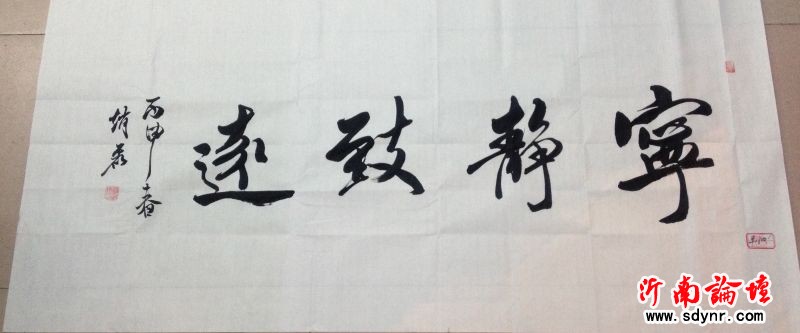 寧靜致遠
丙申春
沂南論壇
www.sdynr.com